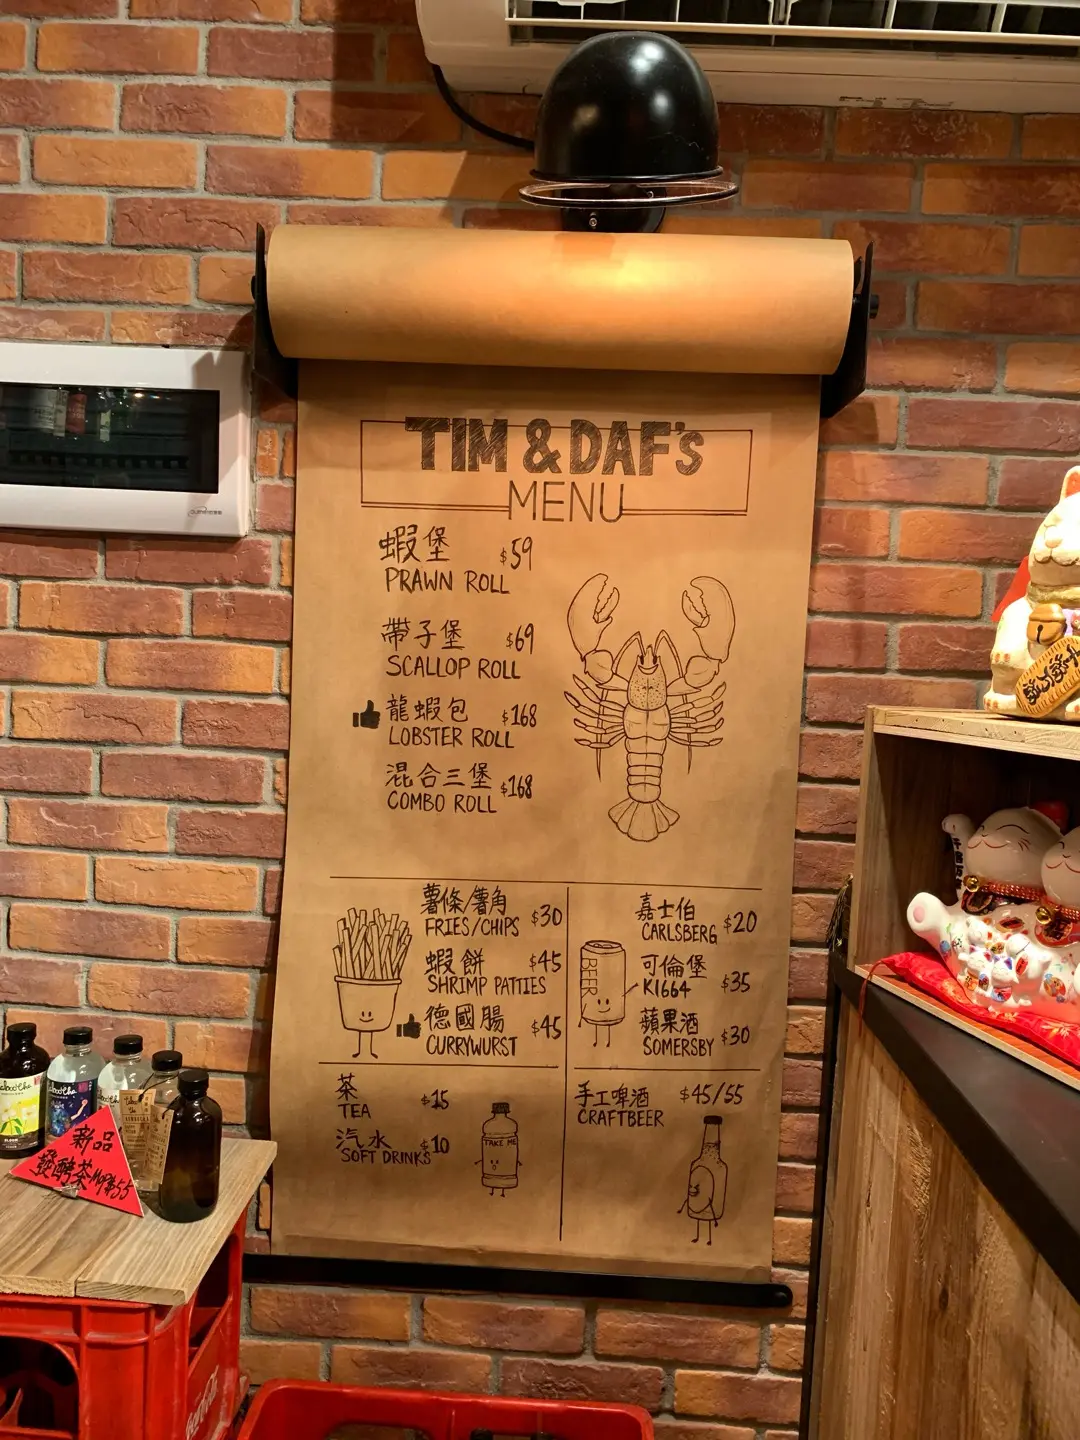 TIM & DAF's
MENU
蝦堡 $59
PRAWN ROLL
帶子堡 $69
SCALLOP ROLL
龍蝦包 $168
LOBSTER ROLL
混合三堡 $168
COMBO ROLL
薯條/薯角 $30
FRIES/CHIPS
蝦餅 $45
SHRIMP PATTIES
德國腸 $45
CURRYWURST
茶 $15
TEA
汽水 $10
SOFT DRINKS
TAKE ME
嘉士伯 $20
CARLSBERG
BEER
可倫堡 $35
K1664
蘋果酒 $30
SOMERSBY
手工啤酒 $45/55
CRAFTBEER
新品
發酵茶 $55